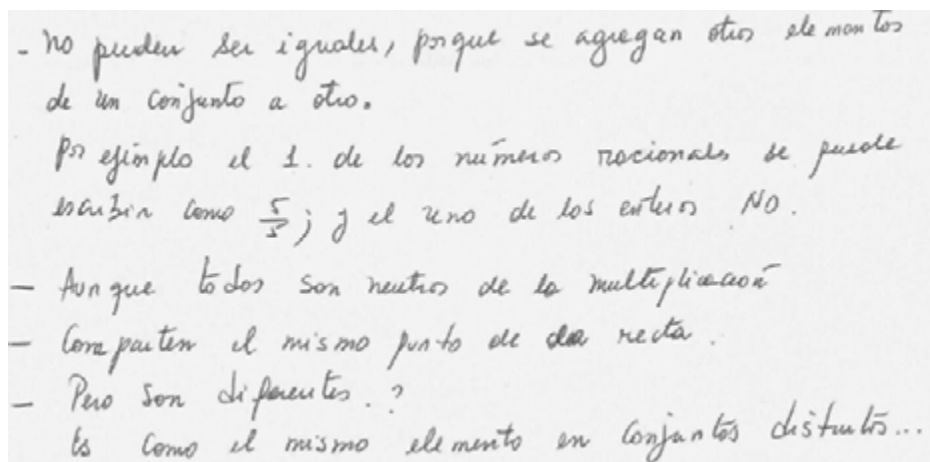 - No pueden ser iguales, porque se agregan otros elementos
de un conjunto a otro.
Por ejemplo el 1. de los números racionales se puede
escribir como 5/5; y el uno de los enteros NO.
- Aunque todos son neutros de la multiplicación
- Comparten el mismo punto de la recta.
- Pero son diferentes.?
Es como el mismo elemento en conjuntos distintos...